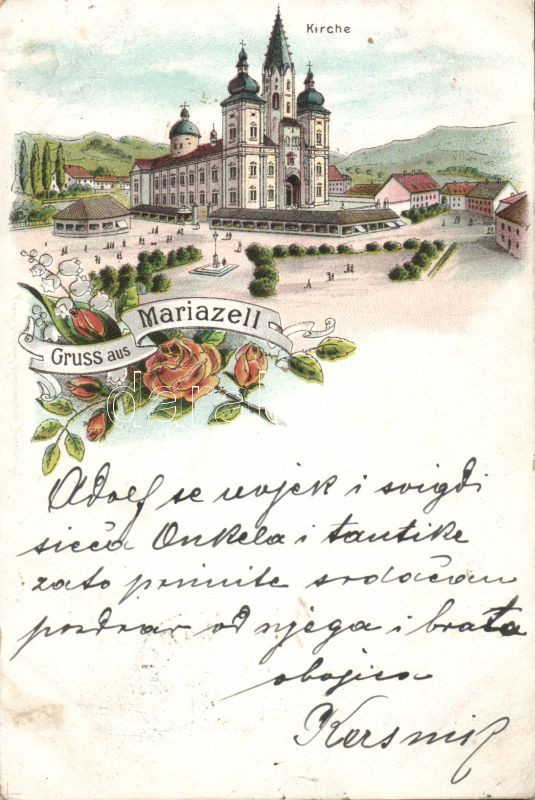 Kirche
Gruss aus Mariazell
Adolf se uvjek i svigdi
sieća Onkela i tantike
zato primite srdačan
pozdrav od njega i brata
obojica